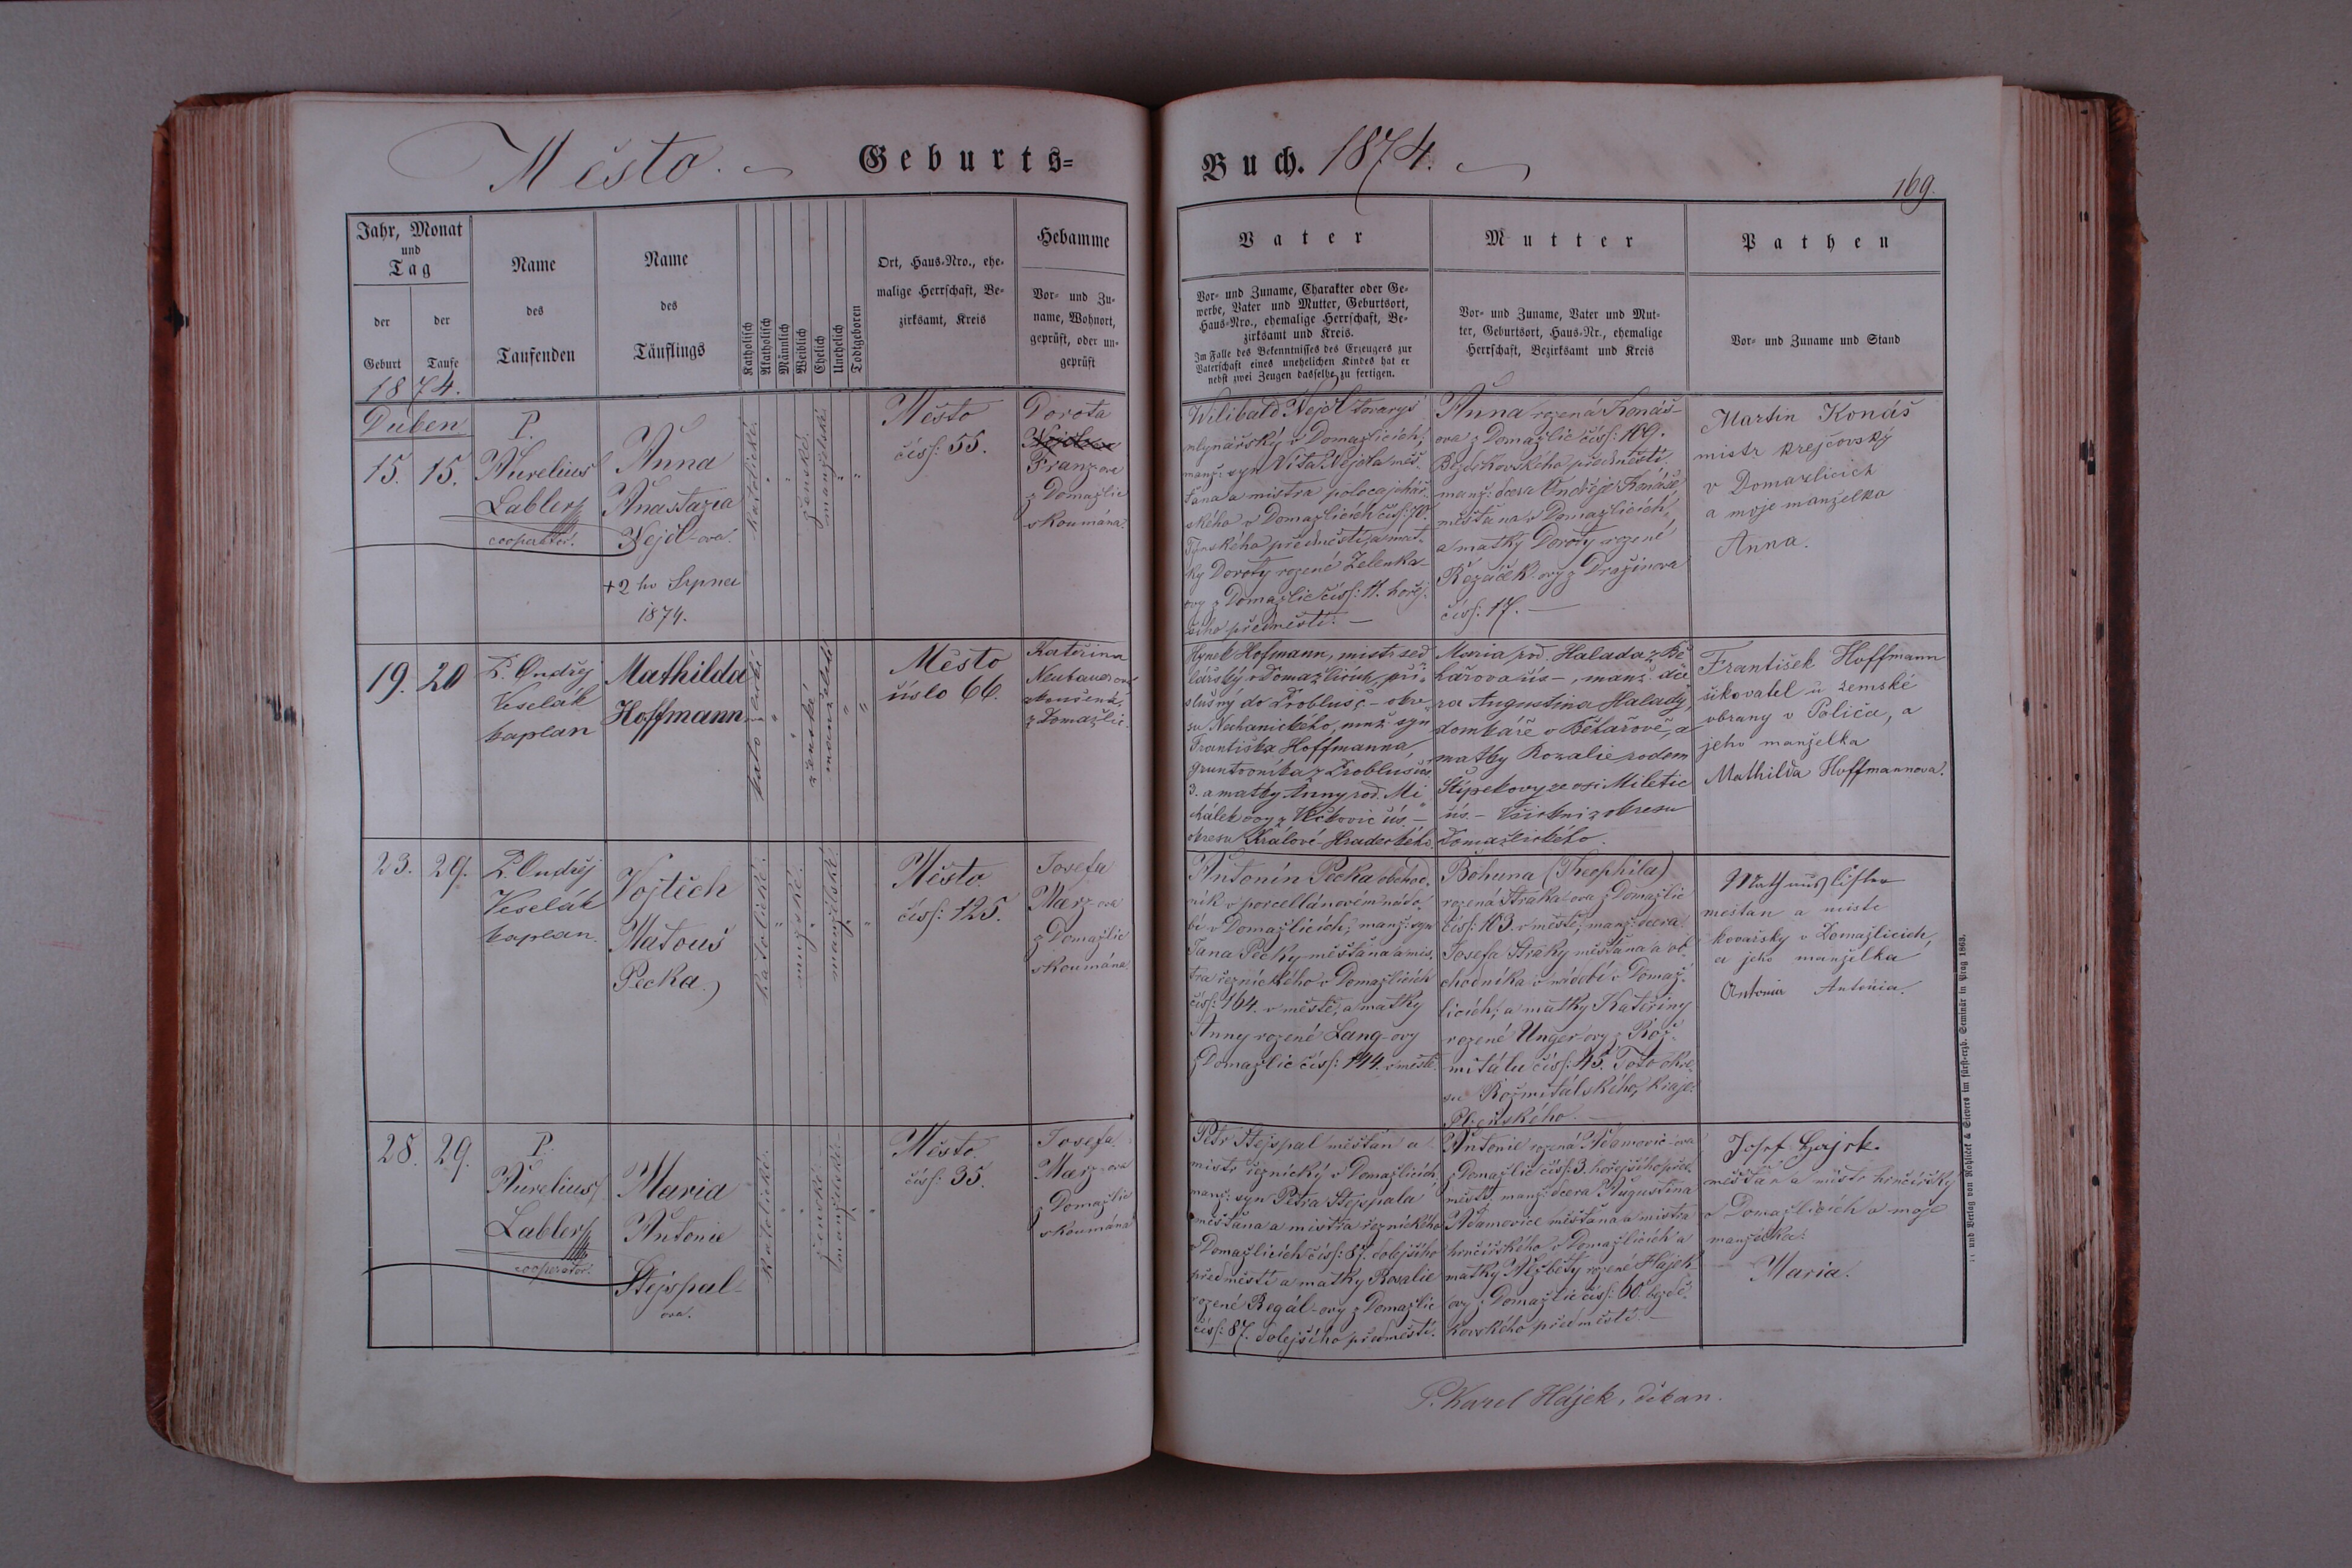 Město.
Geburts=
Buch. 1874.
169.
Jahr, Monat
und
Tag
der
Geburt
der
Taufe
Name
des
Taufenden
Name
des
Täuflings
Katholisch
Akatholisch
Männlich
Weiblich
Ehelich
Unehelich
Todtgeboren
Ort, Haus-Nro., ehe-
malige Herrschaft, Be-
zirksamt, Kreis
Hebamme
Vor- und Zu-
name, Wohnort,
geprüft, oder un-
geprüft
Vater
Vor- und Zuname, Charakter oder Ge-
werbe, Vater und Mutter, Geburtsort,
Haus-Nro., ehemalige Herrschaft, Be-
zirksamt und Kreis.
Im Falle des Bekenntnisses des Erzeugers zur
Vaterschaft eines unehelichen Kindes hat er
nebst zwei Zeugen dasselbe zu fertigen.
Mutter
Vor- und Zuname, Vater und Mut-
ter, Geburtsort, Haus-Nr., ehemalige
Herrschaft, Bezirksamt und Kreis
Pathen
Vor- und Zuname und Stand
1874.
Duben
15. 15.
P.
Aurelius
Labler
cooperator.
Anna
Anastazia
Nejdl-ova.
+2ho Srpna
1874.
katolické.
ženské.
manželské.
Město
čísl: 55.
Dorota
Franz-ova
z Domažlic
zkoumána.
Wilibald Nejdl tovaryš
mlynářský v Domažlicích;
manž: syn Víta Nejdla měš-
ťana a mistra
ského v Domažlicích čísl: 70.
Týnského předměstí, a mat-
ky Doroty rozené Zelenka-
ovy z Domažlic čísl: 11. hořej-
šího předměstí. —
Anna rozená Konáš-
ova z Domažlic čísl: 109.
Bezděkovského předměstí,
manž: dcera Ondřeje Konáše
měšťana v Domažlicích,
a matky Doroty rozené
Řezáček-ovy z Dražinova
čísl: 17. —
Martin Konáš
mistr krejčovský
v Domažlicích
a moje manželka
Anna.
19. 20
P. Ondřej
Veselák
kaplan
Mathilda
Hoffmann
katolické
ženské
manželské
Město
číslo 66.
Kateřina
Neubauerová
zkoušená
z Domažlic.
Hynek Hofmann, mistr sed-
lářský v Domažlicích, pří-
slušný do Probluše - okre-
su Nechanického, manž. syn
Františka Hoffmanna,
gruntovníka z Probluše čís.
3. a matky Anny rod. Mi-
chálek ovy z čís. —
okresu Králové-Hradeckého.
Maria rod. Halada z Bě-
hařova čís —, manž. dce-
ra Augustina Halady,
domkáře v Běhařově, a
matky Rozalie rodem
Štípekovy ze vsi Miletic
čís. — Všickni z okresu
Domažlického.
František Hoffmann
šikovatel u zemské
obrany v Polička, a
jeho manželka
Mathilda Hoffmannova.
23. 29.
P. Ondřej
Veselák
kaplan.
Vojtěch
Matouš
Pecka
katolické.
mužské.
manželské.
Město.
čísl: 125.
Josefa
Marz-ova
z Domažlic
zkoumána.
Antonín Pecka obchod-
ník v porcellánovém nádo-
bí v Domažlicích, manž: syn
Jana Pecky měšťana a mis-
tra řeznického v Domažlicích
čísl: 164. v městě, a matky
Anny rozené Lang-ovy
z Domažlic čísl: 144. v městě.
Bohuna (Theophila)
rozená Straka-ova z Domažlic
čísl: 103. v městě, manž: dcera
Josefa Straky měšťana a ob-
chodníka v nádobí v Domaž-
licích; a matky Kateřiny
rozené Unger-ovy z Rož-
mitálu čísl: 45. Toto okre-
su Rožmitálského, kraje
Plzeňského. —
měštan a mistr
kovařsky v Domažlicich,
a jeho manželka
Antonia.
28. 29.
P.
Aurelius
Labler
cooperator.
Maria
Antonie
Stejspal-
ova.
katolické.
ženské.
manželské.
Město.
čísl: 35.
Josefa
Marz-ova
z Domažlic
zkoumána
Petr Stejspal měšťan a
mistr řeznický v Domažlicích,
manž: syn Petra Stejspala
měšťana a mistra řeznického
v Domažlicích čísl: 87. dolejšího
předměstí a matky Rosalie
rozené Regál-ovy z Domažlic
čísl: 87. dolejšího předměstí.
Antonie rozená Adamovic-ova
z Domažlic čísl: 3. hořejšího před-
městí, manž: dcera Augustina
Adamovice měšťana a mistra
hrnčířského v Domažlicích a
matky Alžběty rozené Hájek-
ovy z Domažlic čísl: 60. bezdě-
kovského předměstí. —
Josef Hajek.
měšťan a mistr hrnčířský
v Domažlicích a moje
manželka:
Maria.
P. Karel Hájek, děkan.
und Verlag von Rohliček & Sievers im fürst-erzb. Seminär in Prag 1863.